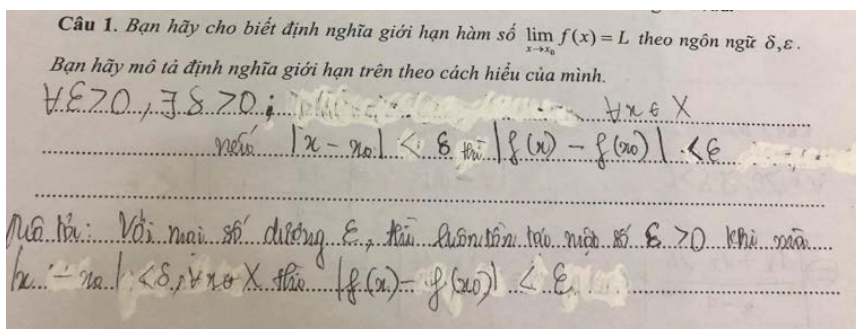 Câu 1. Bạn hãy cho biết định nghĩa giới hạn hàm số lim f(x) = L theo ngôn ngữ δ,ε.
x→x₀
Bạn hãy mô tả định nghĩa giới hạn trên theo cách hiểu của mình.
∀ε>0, ∃δ>0; ∀x∈X
nếu |x - x₀| < δ thì |f(x) - f(x₀)| < ε
Mô tả: Với mọi số dương ε, thì luôn tồn tại một số δ > 0 khi mà
|x - x₀| < δ, ∀x∈X thì |f(x) - f(x₀)| < ε